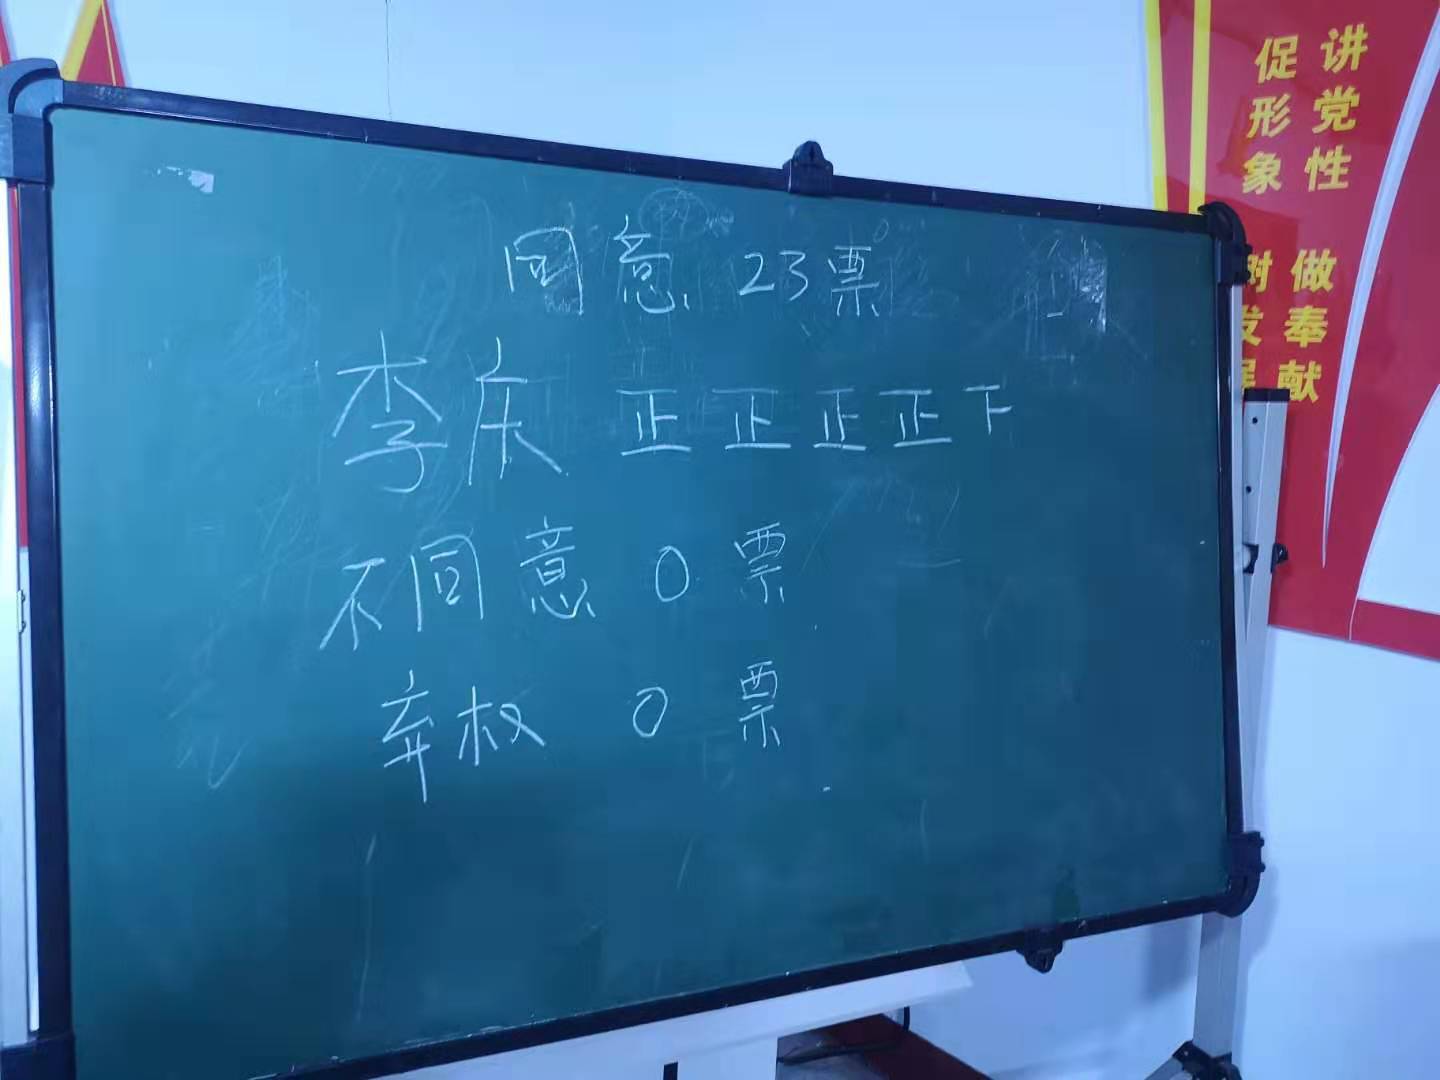 同意 23票
李庆 正正正正下
不同意 0 票
弃权 0 票
讲党性 做奉献
促形象 树发展